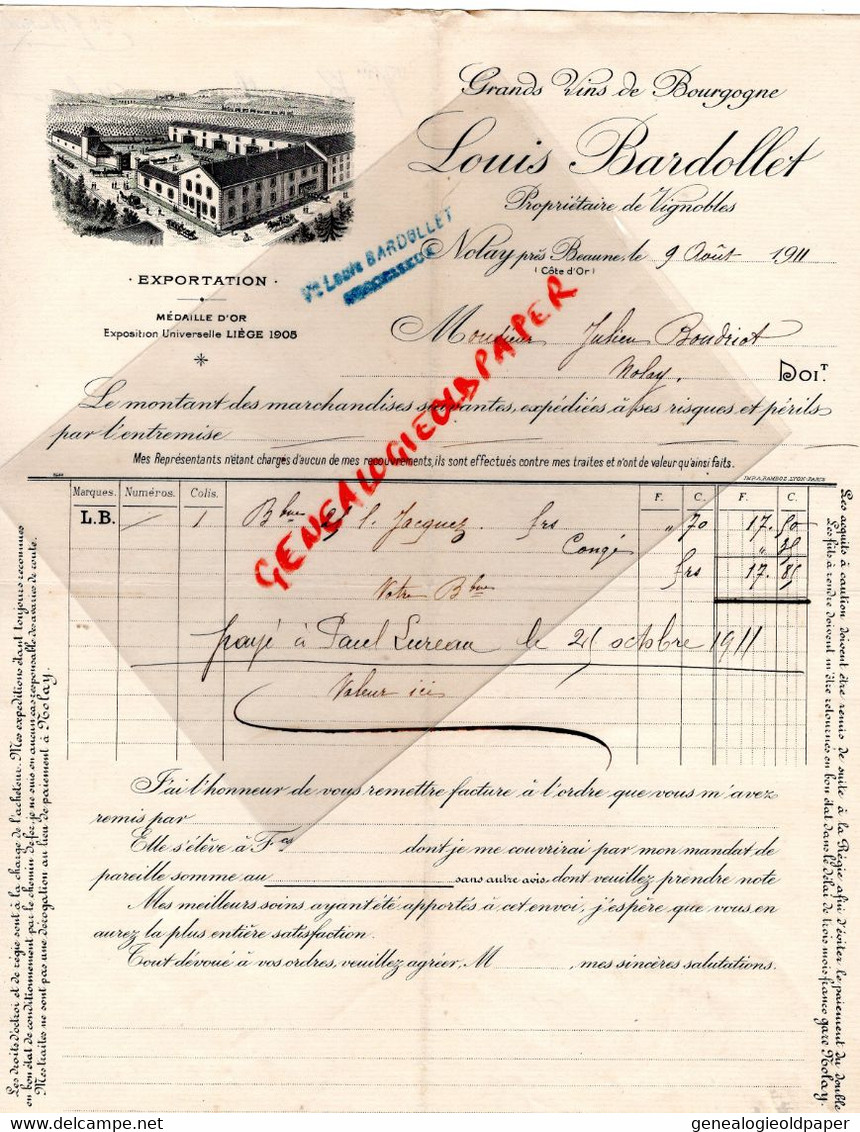 Grands Vins de Bourgogne
Louis Bardollet
Propriétaire de Vignobles
Nolay près Beaune, le 9 Août 1911
(Côte d'Or)
Vve Louis BARDOLLET
SUCCESSEUR
· EXPORTATION ·
MÉDAILLE D'OR
Exposition Universelle LIÈGE 1905
Monsieur Julien Boudriot
Nolay. DOIT.
Le montant des marchandises suivantes, expédiées à ses risques et périls
par l'entremise
Mes Représentants n'étant chargés d'aucun de mes recouvrements, ils sont effectués contre mes traites et n'ont de valeur qu'ainsi faits.
IMP. A. RAMBOZ. LYON-PARIS
Marques. Numéros. Colis. F. C. F. C.
L.B. / 1 Bbne 25 l. Jacquez. frs " 70 17. 50
Congé " 35
frs 17. 85
Votre Bbne
payé à Paul Lureau le 25 octobre 1911
Valeur ici
J'ai l'honneur de vous remettre facture à l'ordre que vous m'avez
remis par
Elle s'élève à Fcs dont je me couvrirai par mon mandat de
pareille somme au sans autre avis, dont veuillez prendre note
Mes meilleurs soins ayant été apportés à cet envoi, j'espère que vous en
aurez la plus entière satisfaction.
Tout dévoué à vos ordres, veuillez agréer, M , mes sincères salutations.
Les droits d'octroi et de régie sont à la charge de l'acheteur. Mes expéditions étant toujours reconnues
en bon état de conditionnement par le chemin de fer, je ne suis en aucun cas responsable des avaries de route.
Mes traites ne sont pas une dérogation au lieu de paiement à Nolay.
Les acquits à caution doivent être remis de suite à la Régie afin d'éviter le paiement du double
Les fûts à rendre doivent m'être retournés en bon état dans le délai de trois mois franco gare Nolay.
GENEALOGIEOLDPAPER
delcampe.net
genealogieoldpaper